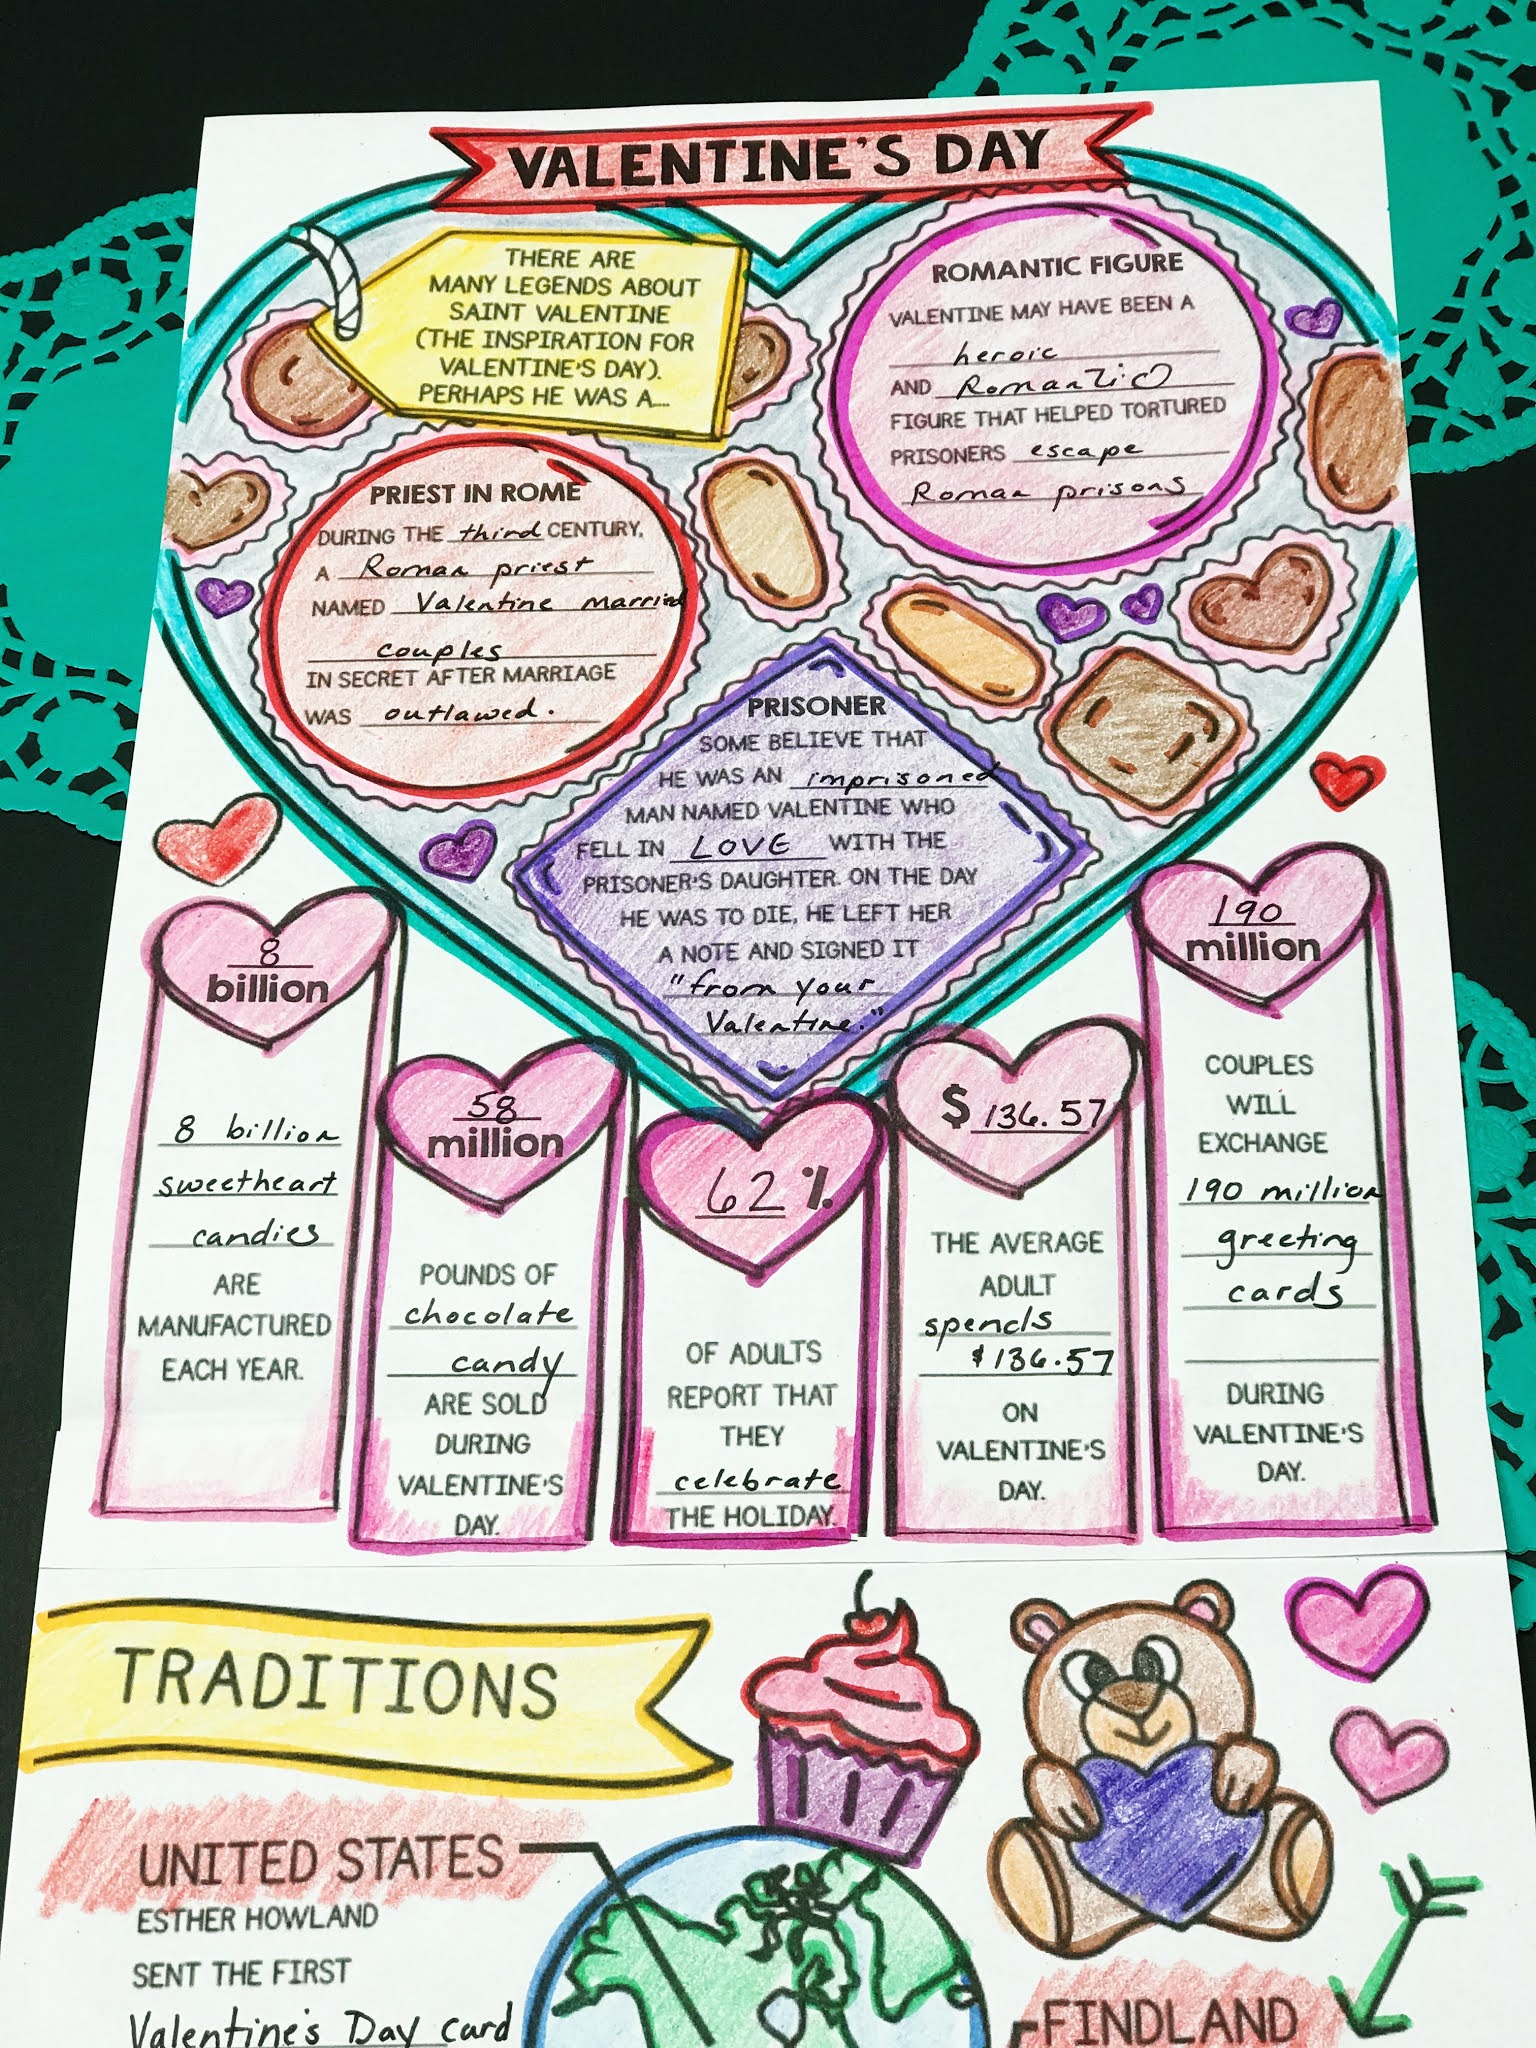 VALENTINE'S DAY
THERE ARE
MANY LEGENDS ABOUT
SAINT VALENTINE
(THE INSPIRATION FOR
VALENTINE'S DAY).
PERHAPS HE WAS A...
ROMANTIC FIGURE
VALENTINE MAY HAVE BEEN A
heroic
AND Romantic
FIGURE THAT HELPED TORTURED
PRISONERS escape
Roman prisons
PRIEST IN ROME
DURING THE third CENTURY,
A Roman priest
NAMED Valentine married
couples
IN SECRET AFTER MARRIAGE
WAS outlawed.
PRISONER
SOME BELIEVE THAT
HE WAS AN imprisoned
MAN NAMED VALENTINE WHO
FELL IN LOVE WITH THE
PRISONER'S DAUGHTER. ON THE DAY
HE WAS TO DIE, HE LEFT HER
A NOTE AND SIGNED IT
"from your
Valentine."
8
billion
8 billion
sweetheart
candies
ARE
MANUFACTURED
EACH YEAR.
58
million
POUNDS OF
chocolate
candy
ARE SOLD
DURING
VALENTINE'S
DAY.
62 %
OF ADULTS
REPORT THAT
THEY
celebrate
THE HOLIDAY.
$ 136.57
THE AVERAGE
ADULT
spends
$136.57
ON
VALENTINE'S
DAY.
190
million
COUPLES
WILL
EXCHANGE
190 million
greeting
cards
DURING
VALENTINE'S
DAY.
TRADITIONS
UNITED STATES
ESTHER HOWLAND
SENT THE FIRST
Valentine's Day card
FINDLAND